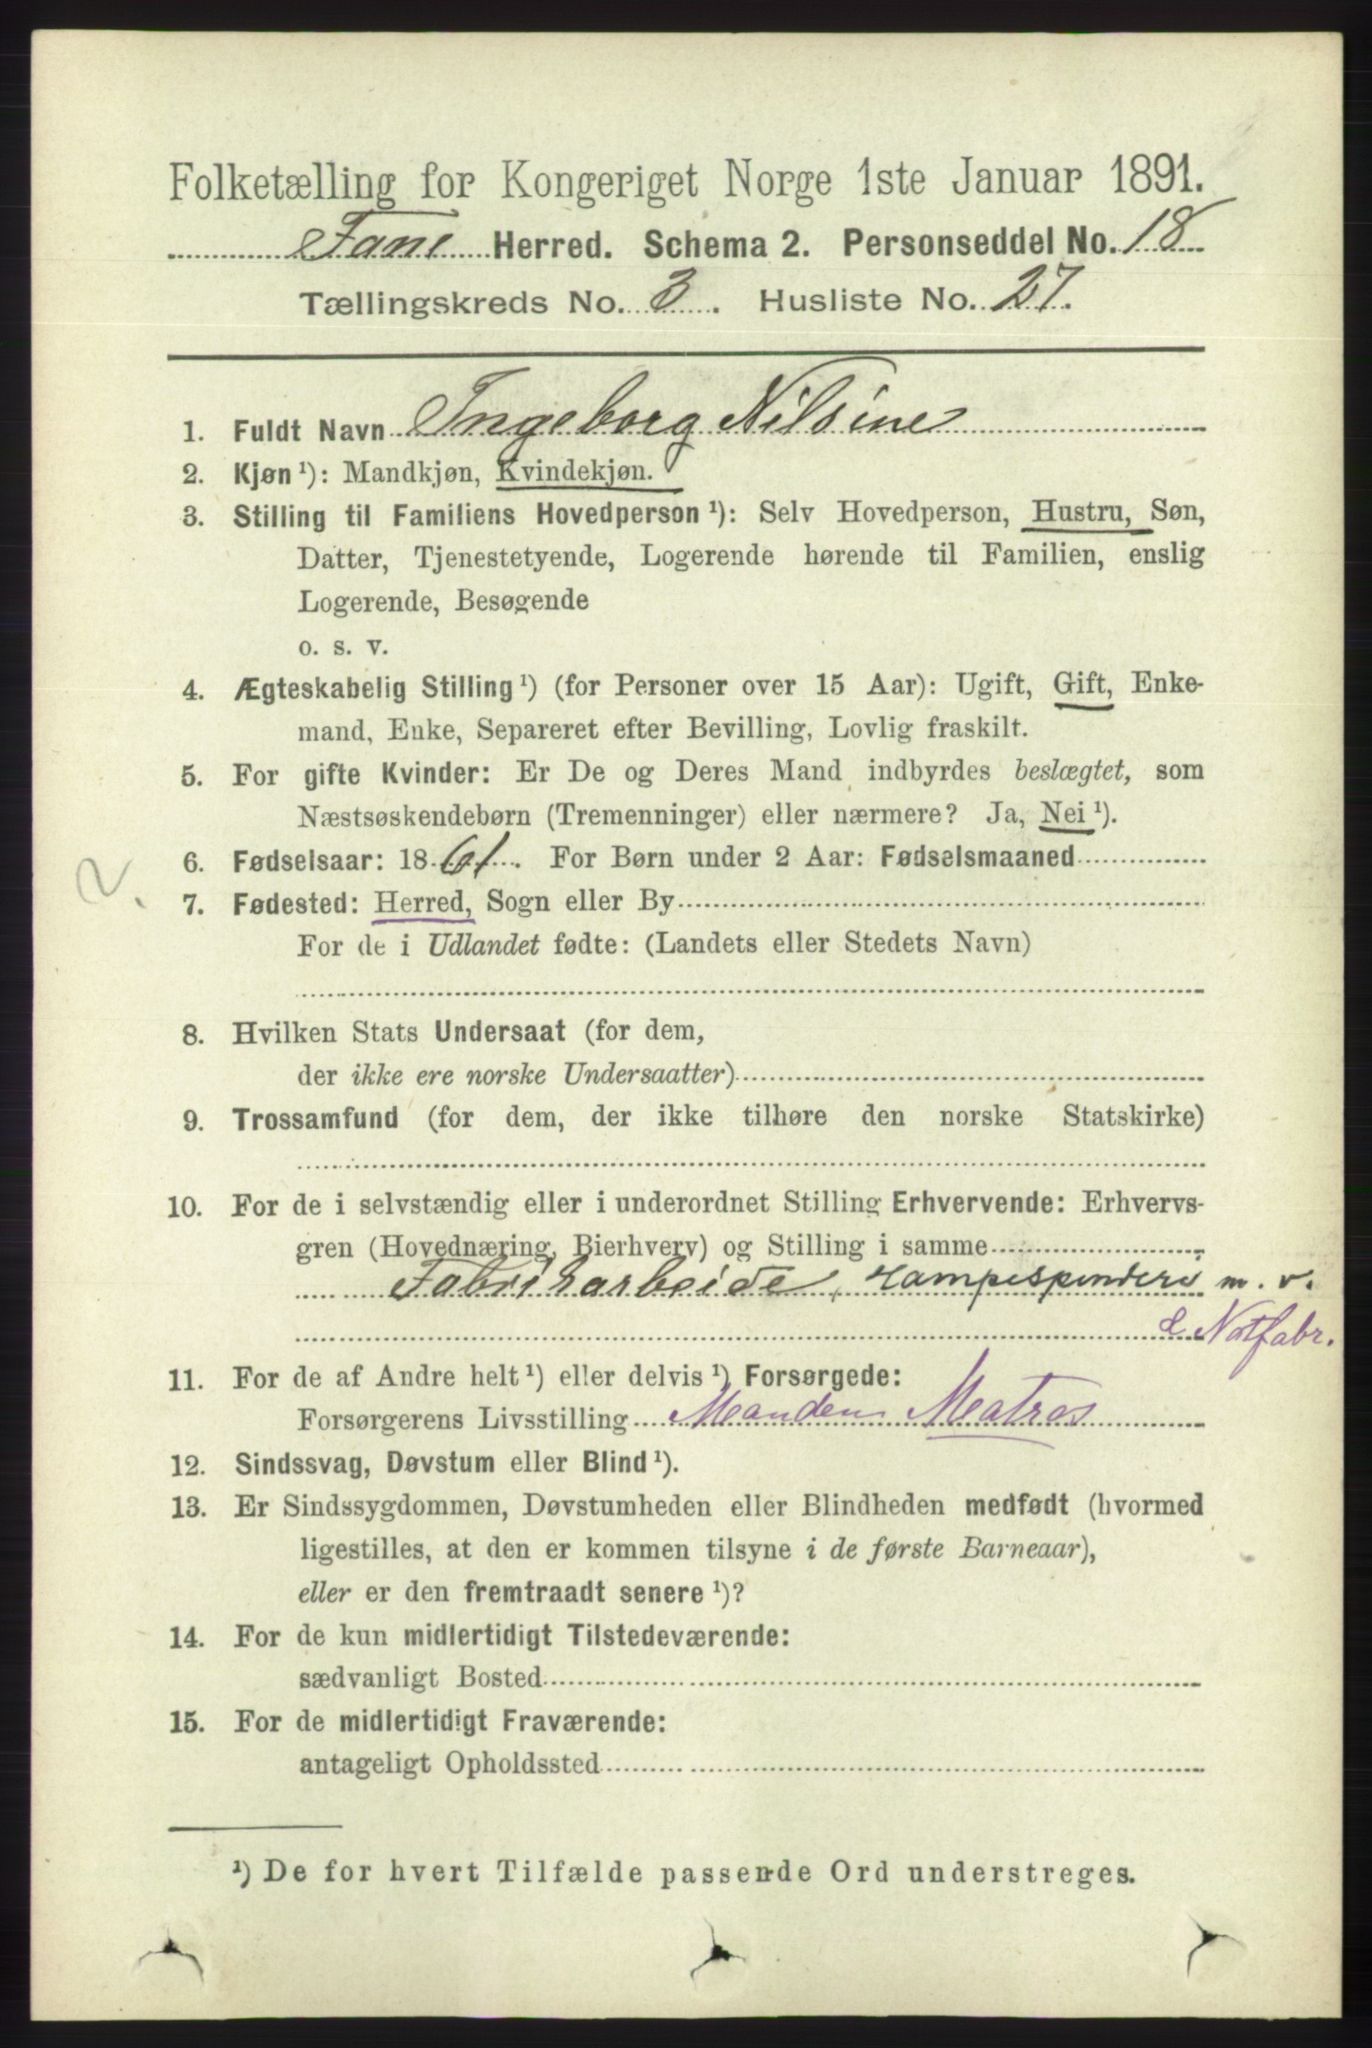 Folketælling for Kongeriget Norge 1ste Januar 1891.
Fane Herred. Schema 2. Personseddel No. 18
Tællingskreds No. 3. Husliste No. 27.
1. Fuldt Navn Ingeborg Nilsine
2. Kjøn ¹): Mandkjøn, Kvindekjøn.
3. Stilling til Familiens Hovedperson ¹): Selv Hovedperson, Hustru, Søn,
Datter, Tjenestetyende, Logerende hørende til Familien, enslig
Logerende, Besøgende
o. s. v.
4. Ægteskabelig Stilling ¹) (for Personer over 15 Aar): Ugift, Gift, Enke-
mand, Enke, Separeret efter Bevilling, Lovlig fraskilt.
5. For gifte Kvinder: Er De og Deres Mand indbyrdes beslægtet, som
Næstsøskendebørn (Tremenninger) eller nærmere? Ja, Nei ¹).
2. 6. Fødselsaar: 1861. For Børn under 2 Aar: Fødselsmaaned
7. Fødested: Herred, Sogn eller By
For de i Udlandet fødte: (Landets eller Stedets Navn)
8. Hvilken Stats Undersaat (for dem,
der ikke ere norske Undersaatter)
9. Trossamfund (for dem, der ikke tilhøre den norske Statskirke)
10. For de i selvstændig eller i underordnet Stilling Erhvervende: Erhvervs-
gren (Hovednæring, Bierhverv) og Stilling i samme
Fabrikarbeide, Hampespinderi m. v.
& Notfabr.
11. For de af Andre helt ¹) eller delvis ¹) Forsørgede:
Forsørgerens Livsstilling Manden Matros
12. Sindssvag, Døvstum eller Blind ¹).
13. Er Sindssygdommen, Døvstumheden eller Blindheden medfødt (hvormed
ligestilles, at den er kommen tilsyne i de første Barneaar),
eller er den fremtraadt senere ¹)?
14. For de kun midlertidigt Tilstedeværende:
sædvanligt Bosted
15. For de midlertidigt Fraværende:
antageligt Opholdssted
¹) De for hvert Tilfælde passende Ord understreges.